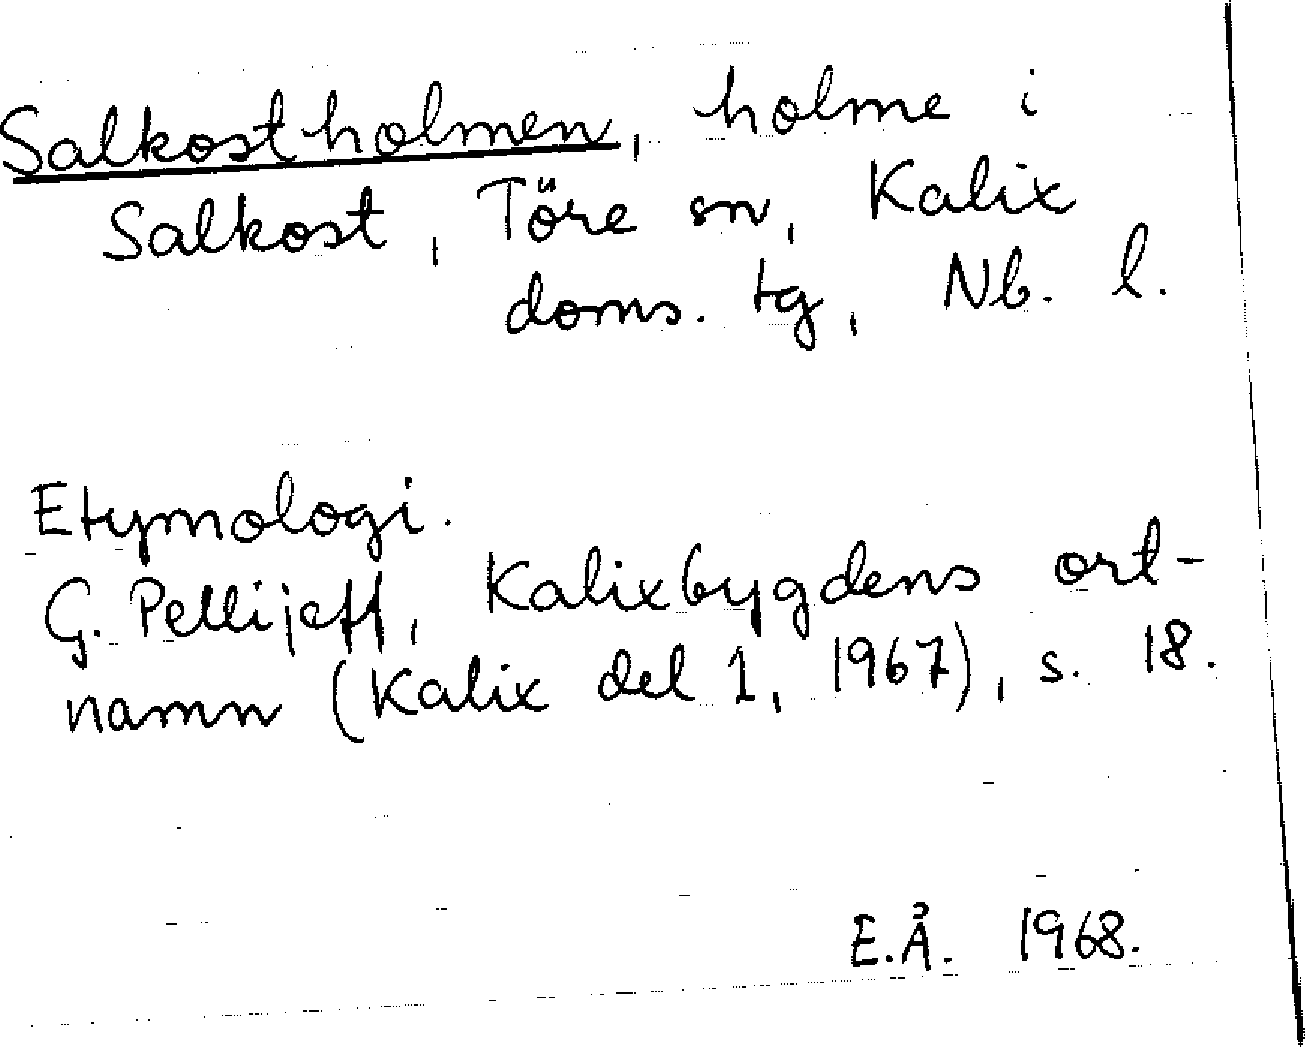 Salkostholmen, holme i
Salkost, Töre sn, Kalix
doms. tg, Nb. l.
Etymologi.
G. Pellijeff, Kalixbygdens ort-
namn (Kalix del 1, 1967), s. 18.
E.Å. 1968.